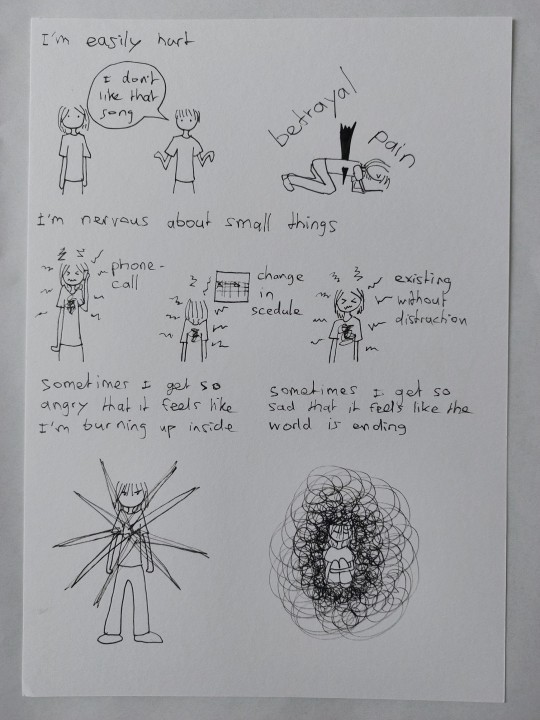 I'm easily hurt
I don't
like that
song
betrayal
pain
I'm nervous about small things
phone-
call
change
in
scedule
existing
without
distruction
sometimes I get so
angry that it feels like
I'm burning up inside
sometimes I get so
sad that it feels like the
world is ending